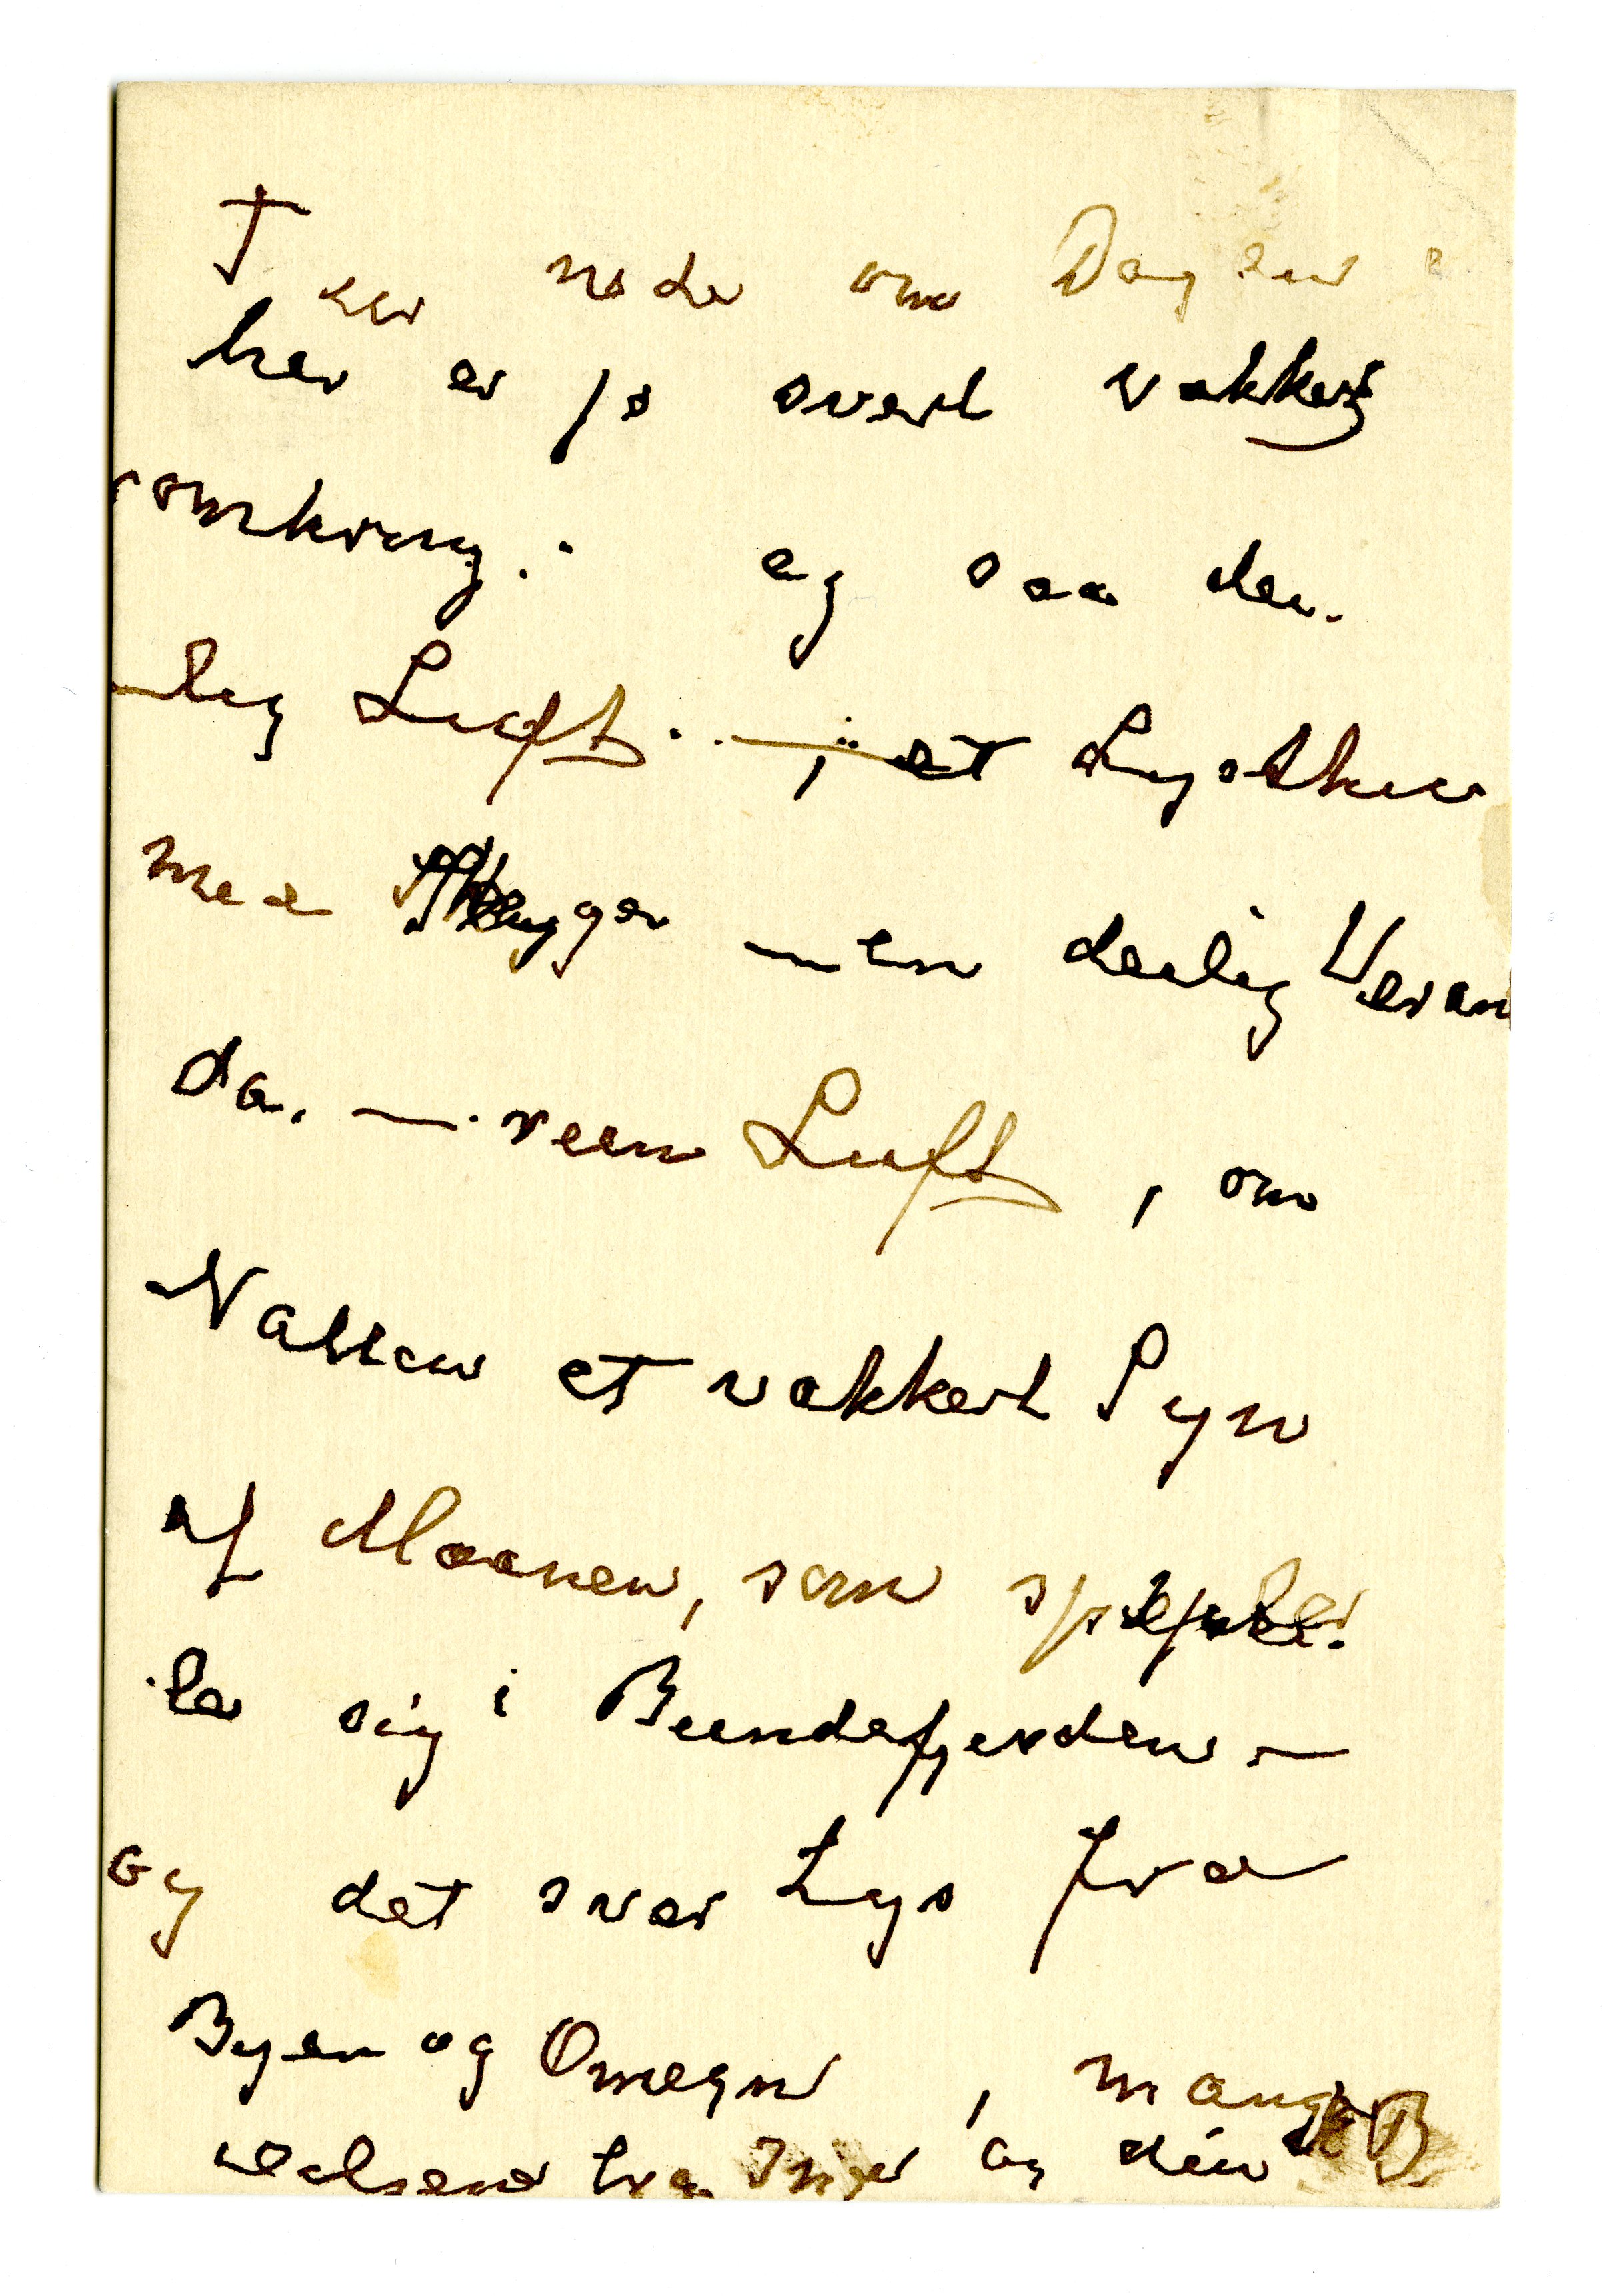 Tur nede om Dagen
her er jo svert vakkert
omkring. og saa dei-
lig Luft. – et Lysthus
med Skygger – en deilig Veran
da. – reen Luft, om
Natten et vakkert Syn
af Maanen, som speiler
ler sig i Bundefjorden –
og det svær Lys fra
Byen og Omegn, mange
velsener fra Inger og din B